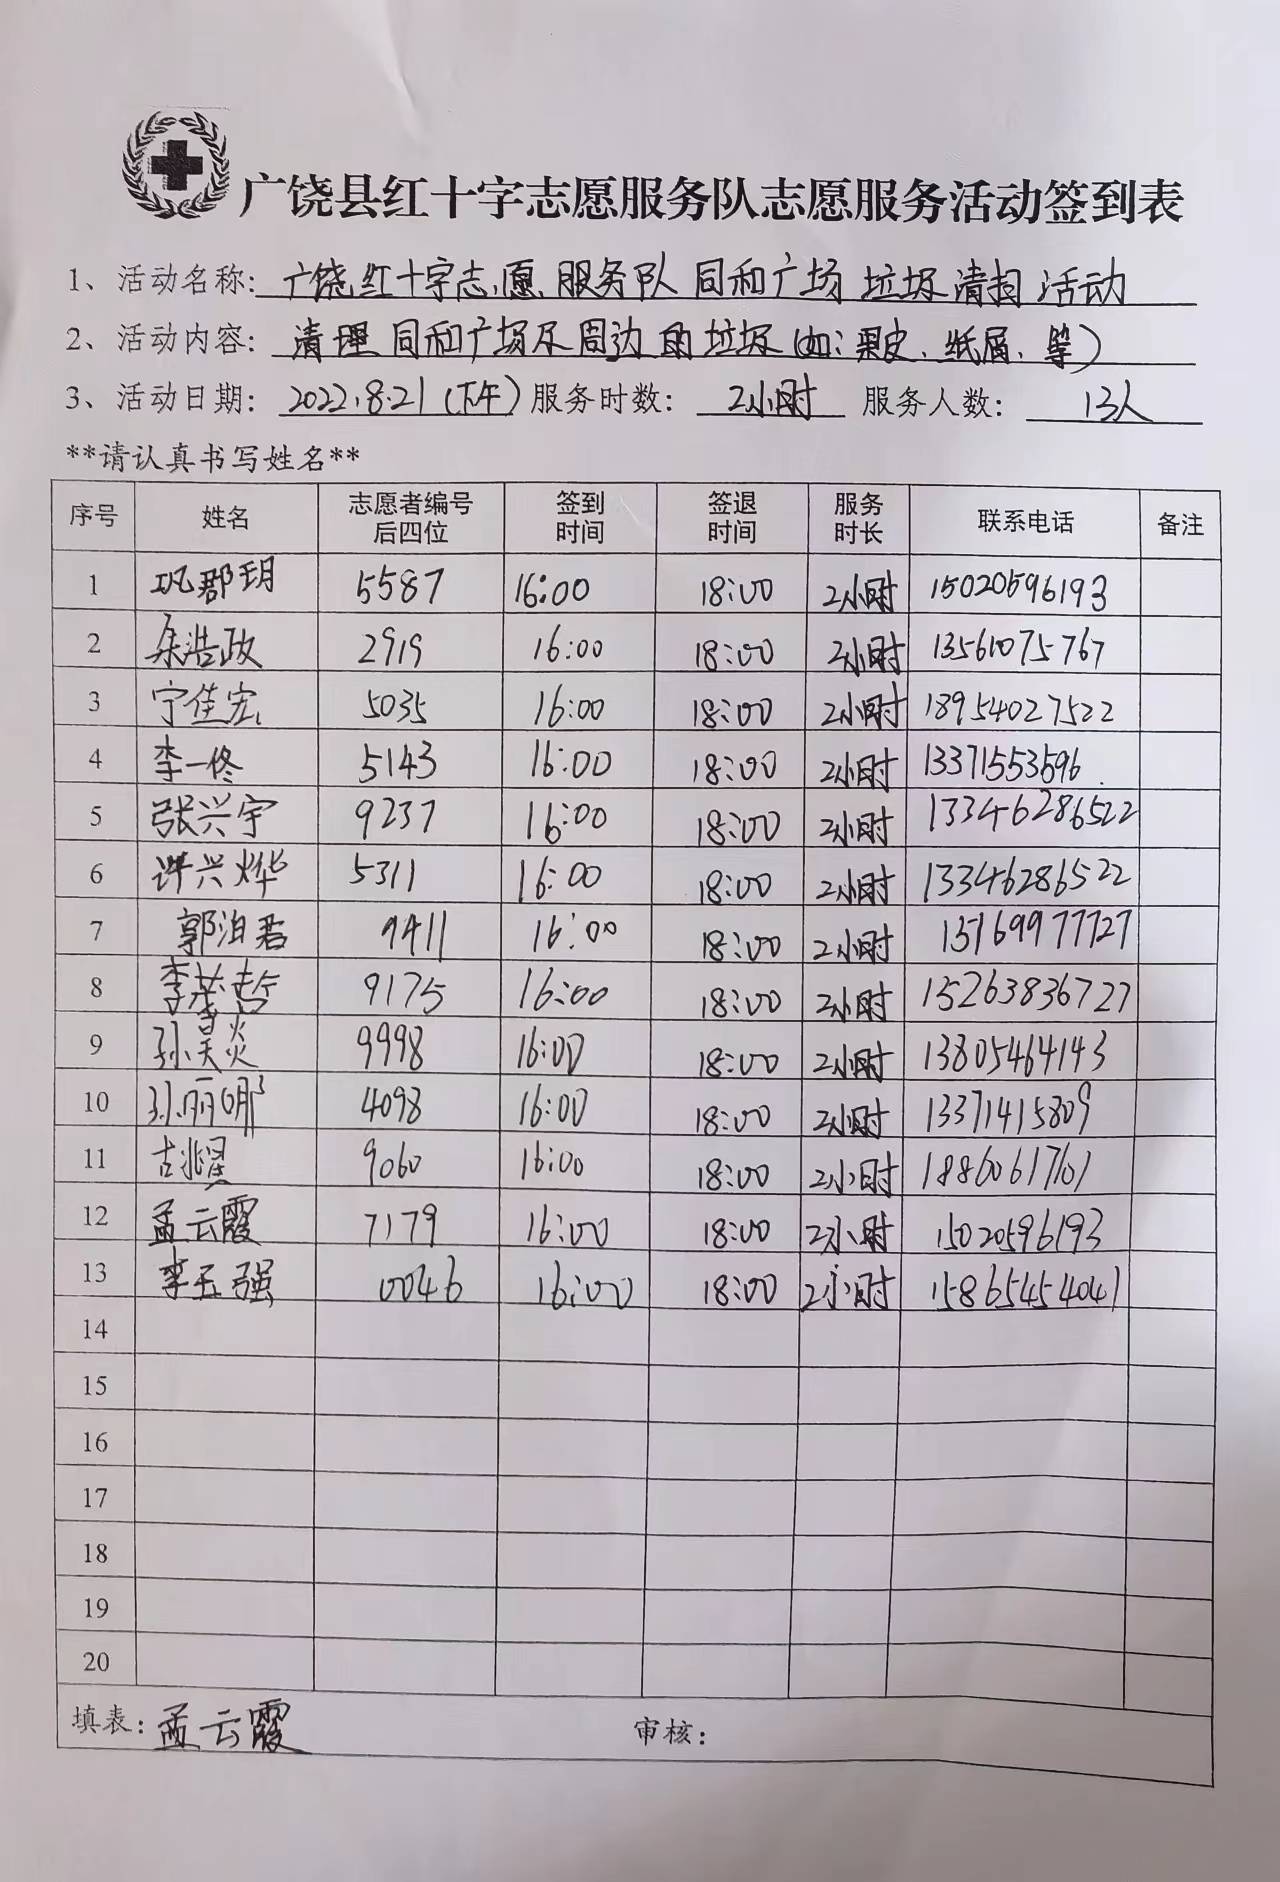 广饶县红十字志愿服务队志愿服务活动签到表
1、活动名称: 广饶红十字志愿服务队同和广场垃圾清扫活动
2、活动内容: 清理同和广场及周边的垃圾(如:果皮、纸屑、等)
3、活动日期: 2022.8.21(下午) 服务时数: 2小时 服务人数: 13人
**请认真书写姓名**
序号 姓名 志愿者编号后四位 签到时间 签退时间 服务时长 联系电话 备注
1 巩郡玥 5587 16:00 18:00 2小时 15020596193
2 浩政 2919 16:00 18:00 2小时 13561075767
3 宁佳宏 5035 16:00 18:00 2小时 18954027522
4 李一佟 5143 16:00 18:00 2小时 13371553596
5 张兴宇 9237 16:00 18:00 2小时 13346286522
6 许兴烨 5311 16:00 18:00 2小时 13346286522
7 郭泊君 9411 16:00 18:00 2小时 15169977727
8 李荣哲 9175 16:00 18:00 2小时 15263836727
9 孙昊炎 9998 16:00 18:00 2小时 13805464143
10 孙丽娜 4098 16:00 18:00 2小时 13371415809
11 古兆 9060 16:00 18:00 2小时 18860617101
12 孟云霞 7179 16:00 18:00 2小时 15020596193
13 李玉强 0046 16:00 18:00 2小时 15865454041
14
15
16
17
18
19
20
填表: 孟云霞 审核: